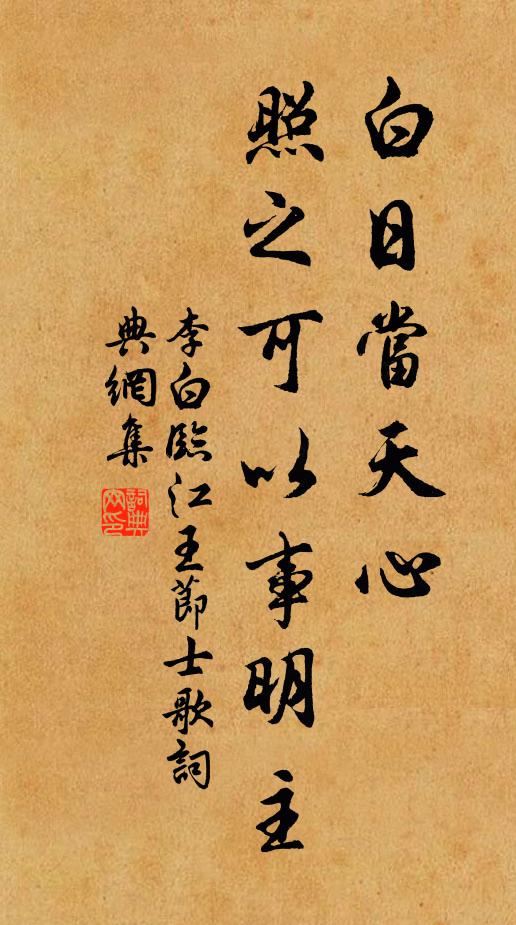 白日當天心
照之可以事明主
李白臨江王節士歌詞
典網集
詞典网印